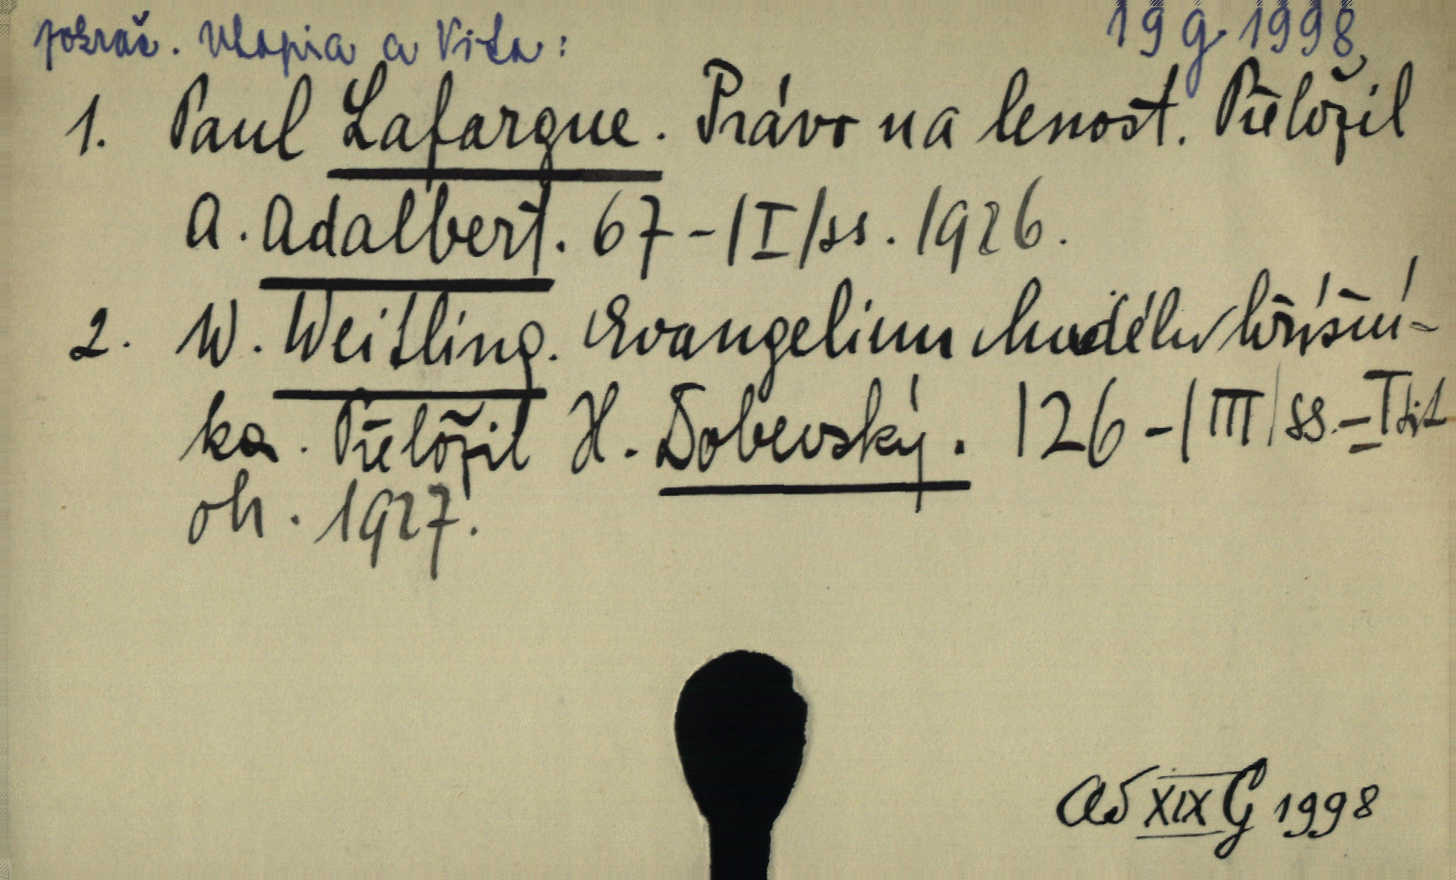 pokrač. Utopia a Vita: 19 g. 1998
1. Paul Lafargue. Právo na lenost. Přeložil
A. Adalbert. 67-|I|ss. 1926.
2. W. Weitling. Evangelium chudého hříšní-
ka. Přeložil H. Dobevský. 126-|III|ss.-I tit
oh. 1927.
Ad XIX G 1998